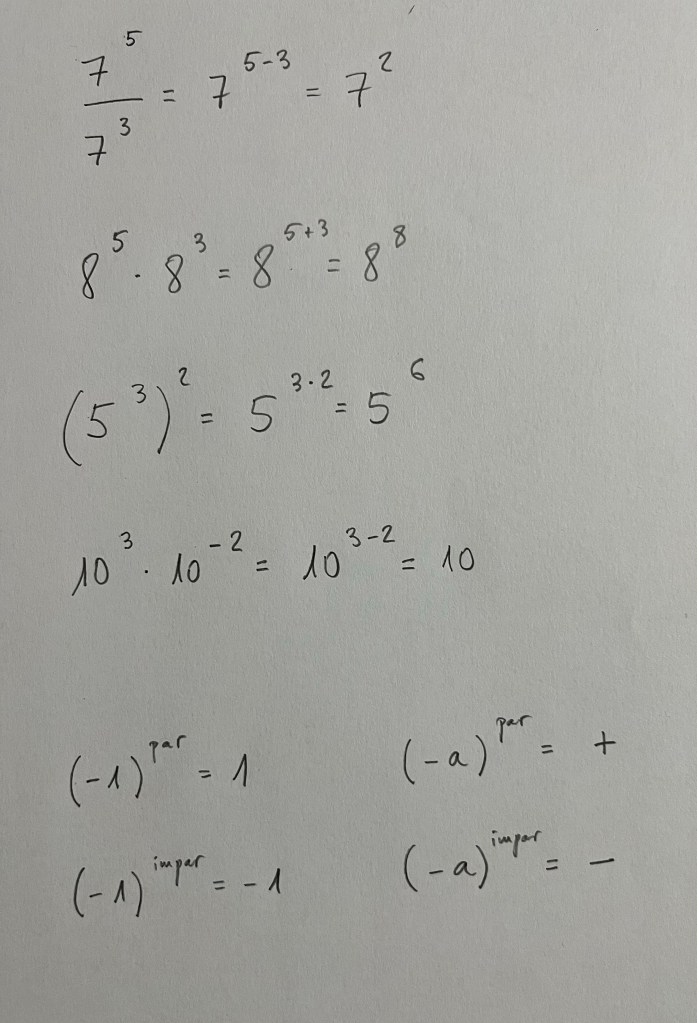 7⁵/7³ = 7⁵⁻³ = 7²
8⁵ · 8³ = 8⁵⁺³ = 8⁸
(5³)² = 5³·² = 5⁶
10³ · 10⁻² = 10³⁻² = 10
(-1)^par = 1 (-a)^par = +
(-1)^impar = -1 (-a)^impar = -